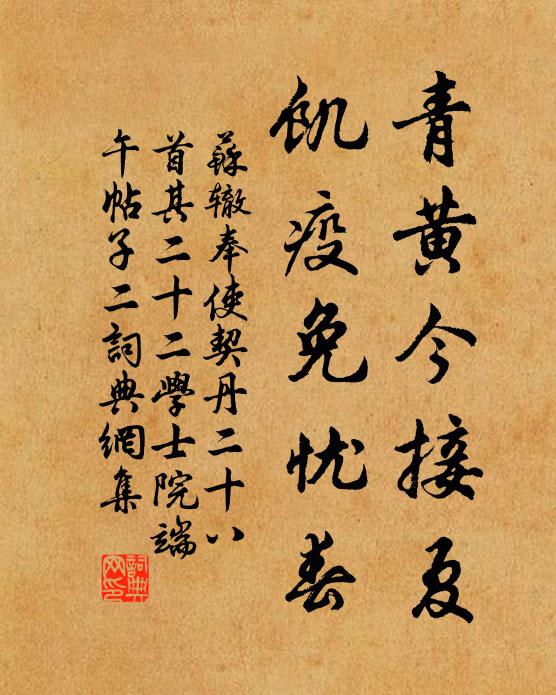 青黄今接夏
飢疫免忧春
蘇辙奉使契丹二十八
首其二十二學士院端
午帖子二詞典網集
詞典
网印